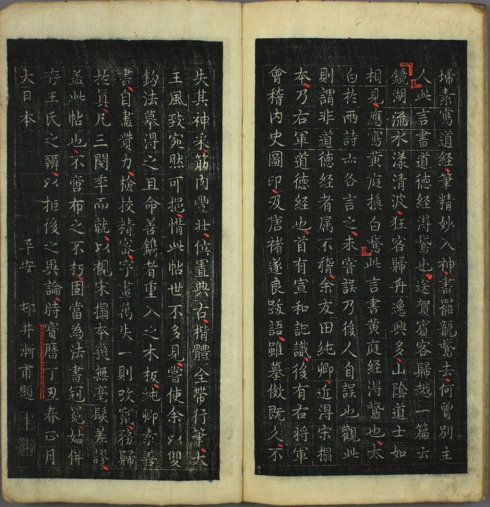 埽素寫道經筆精妙入神書罷籠鵞去何曽別主
人此言書道德經得鵞也送賀賓客歸越一篇云
鏡湖流水漾清波狂客歸舟逸興多山陰道士如
相見應寫黄庭換白鵞此言書黄庭經得鵞也太
白於兩詩亦各言之未嘗誤乃後人自誤也觀此
則謂非道德經者属不稽余友田純卿近得宋搨
本乃右軍道德經也首有宣和記識後有右将軍
會稽内史圖印及唐褚遂良跋語雖摹倣既久不
失其神采筋肉豐壮位置典右楷體全帶行筆大
王風致宛然可挹惜此帖世不多見嘗使余以雙
鈎法摹得之且命善鐫者重入之木板純卿素善
書自盡賛力挍挍精密字畫萬失一則改竄務歸
於真凡三閱季而就以視宋搨本幾無毫髮差謬
蓋此帖也不啻布之不朽固當為法書冠冕姑併
存王氏之辯以拒後之異論時寳暦丁丑春正月
大日本　　平安　　邨井漸甫題